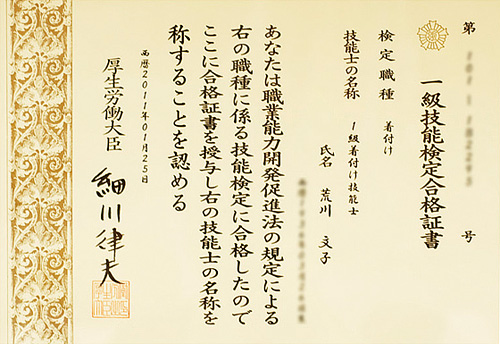 第 号
一級技能検定合格証書
検定職種 着付け
技能士の名称 1級着付け技能士
氏名 荒川 文子
あなたは職業能力開発促進法の規定による
右の職種に係る技能検定に合格したので
ここに合格証書を授与し右の技能士の名称を
称することを認める
西暦2011年01月25日
厚生労働大臣 細川律夫